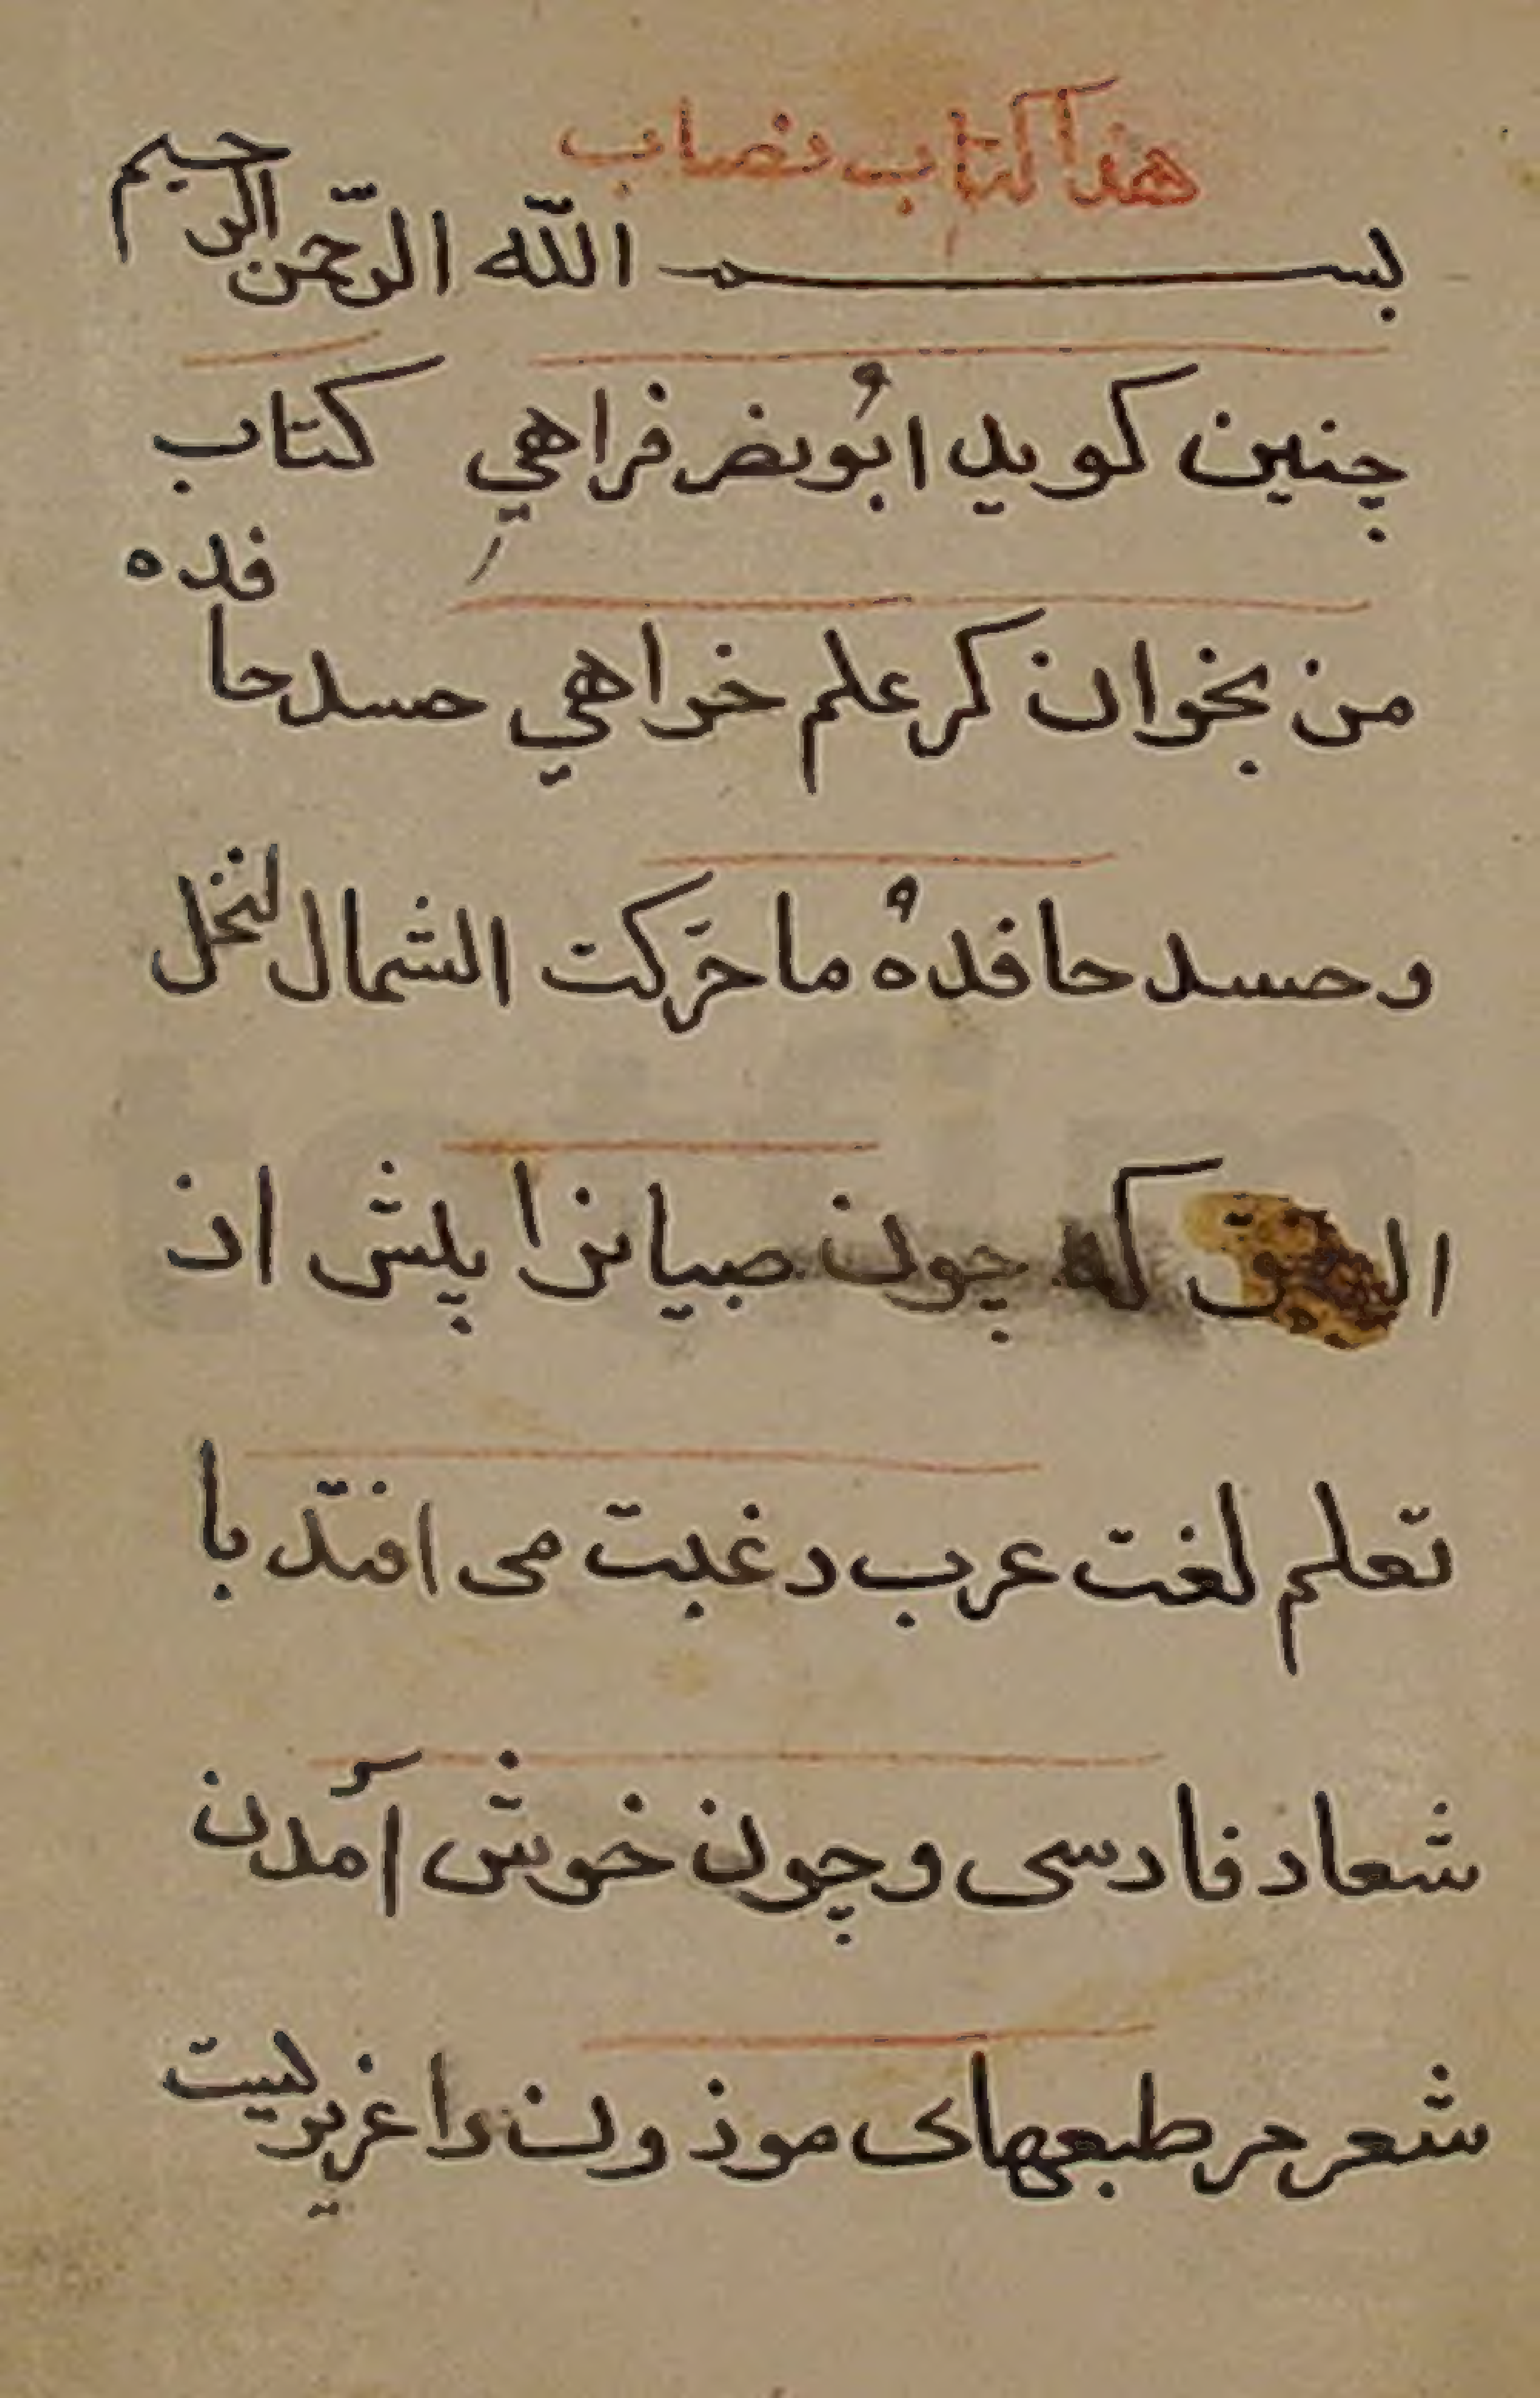 هذا كتاب نصاب
بسم الله الرحمن الرحيم
چنين كويد ابُونصر فراهي كتاب
من بخوان كر علم خواهي حسد حافده
و حسد حافدهُ ما حَركت الشمال لنخل
كه چون صبيانرا پيش از
تعلم لغت عرب رغبت می افتد با
شعار فارسی و چون خوش آمدن
شعر مر طبعهای موزون را غريزيست